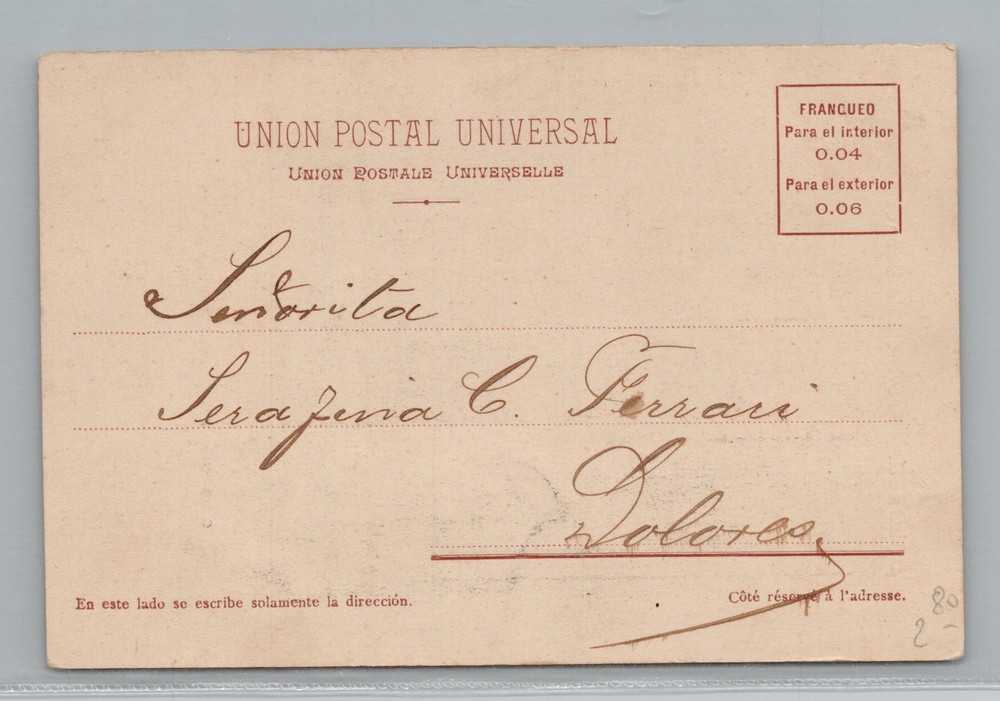 UNION POSTAL UNIVERSAL
UNION POSTALE UNIVERSELLE
FRANQUEO
Para el interior
0.04
Para el exterior
0.06
Señorita
Serafina C. Ferrari
Dolores.
En este lado se escribe solamente la dirección.
Côté réservé à l'adresse.
80
2 -